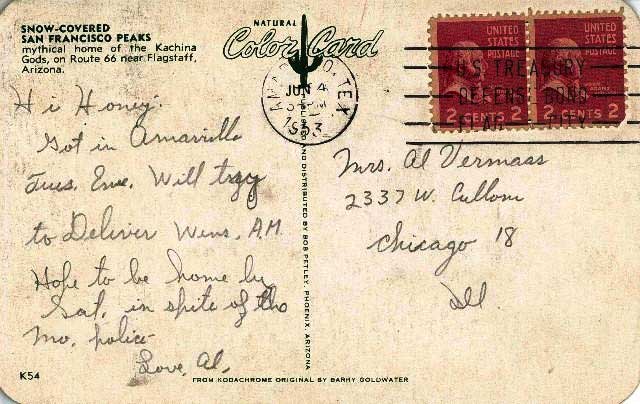 SNOW-COVERED
SAN FRANCISCO PEAKS
mythical home of the Kachina
Gods, on Route 66 near Flagstaff,
Arizona.
NATURAL
Color Card
UNITED
STATES
POSTAGE
2 CENTS 2
UNITED
STATES
POSTAGE
ADAMS
2 CENTS 2
AMARILLO, TEX
JUN 4
PM
1953
U.S. TREASURY
DEFENSE BOND
Hi Honey:
Got in Amarillo
Tues. Eve. Will try
to Deliver Wens. A.M.
Hope to be home by
Sat. in spite of the
Mo. police
Love, Al,
Mrs. Al Vermass
2337 W. Cullom
Chicago 18
Ill.
PUBLISHED AND DISTRIBUTED BY BOB PETLEY, PHOENIX, ARIZONA
K54
FROM KODACHROME ORIGINAL BY BARRY GOLDWATER